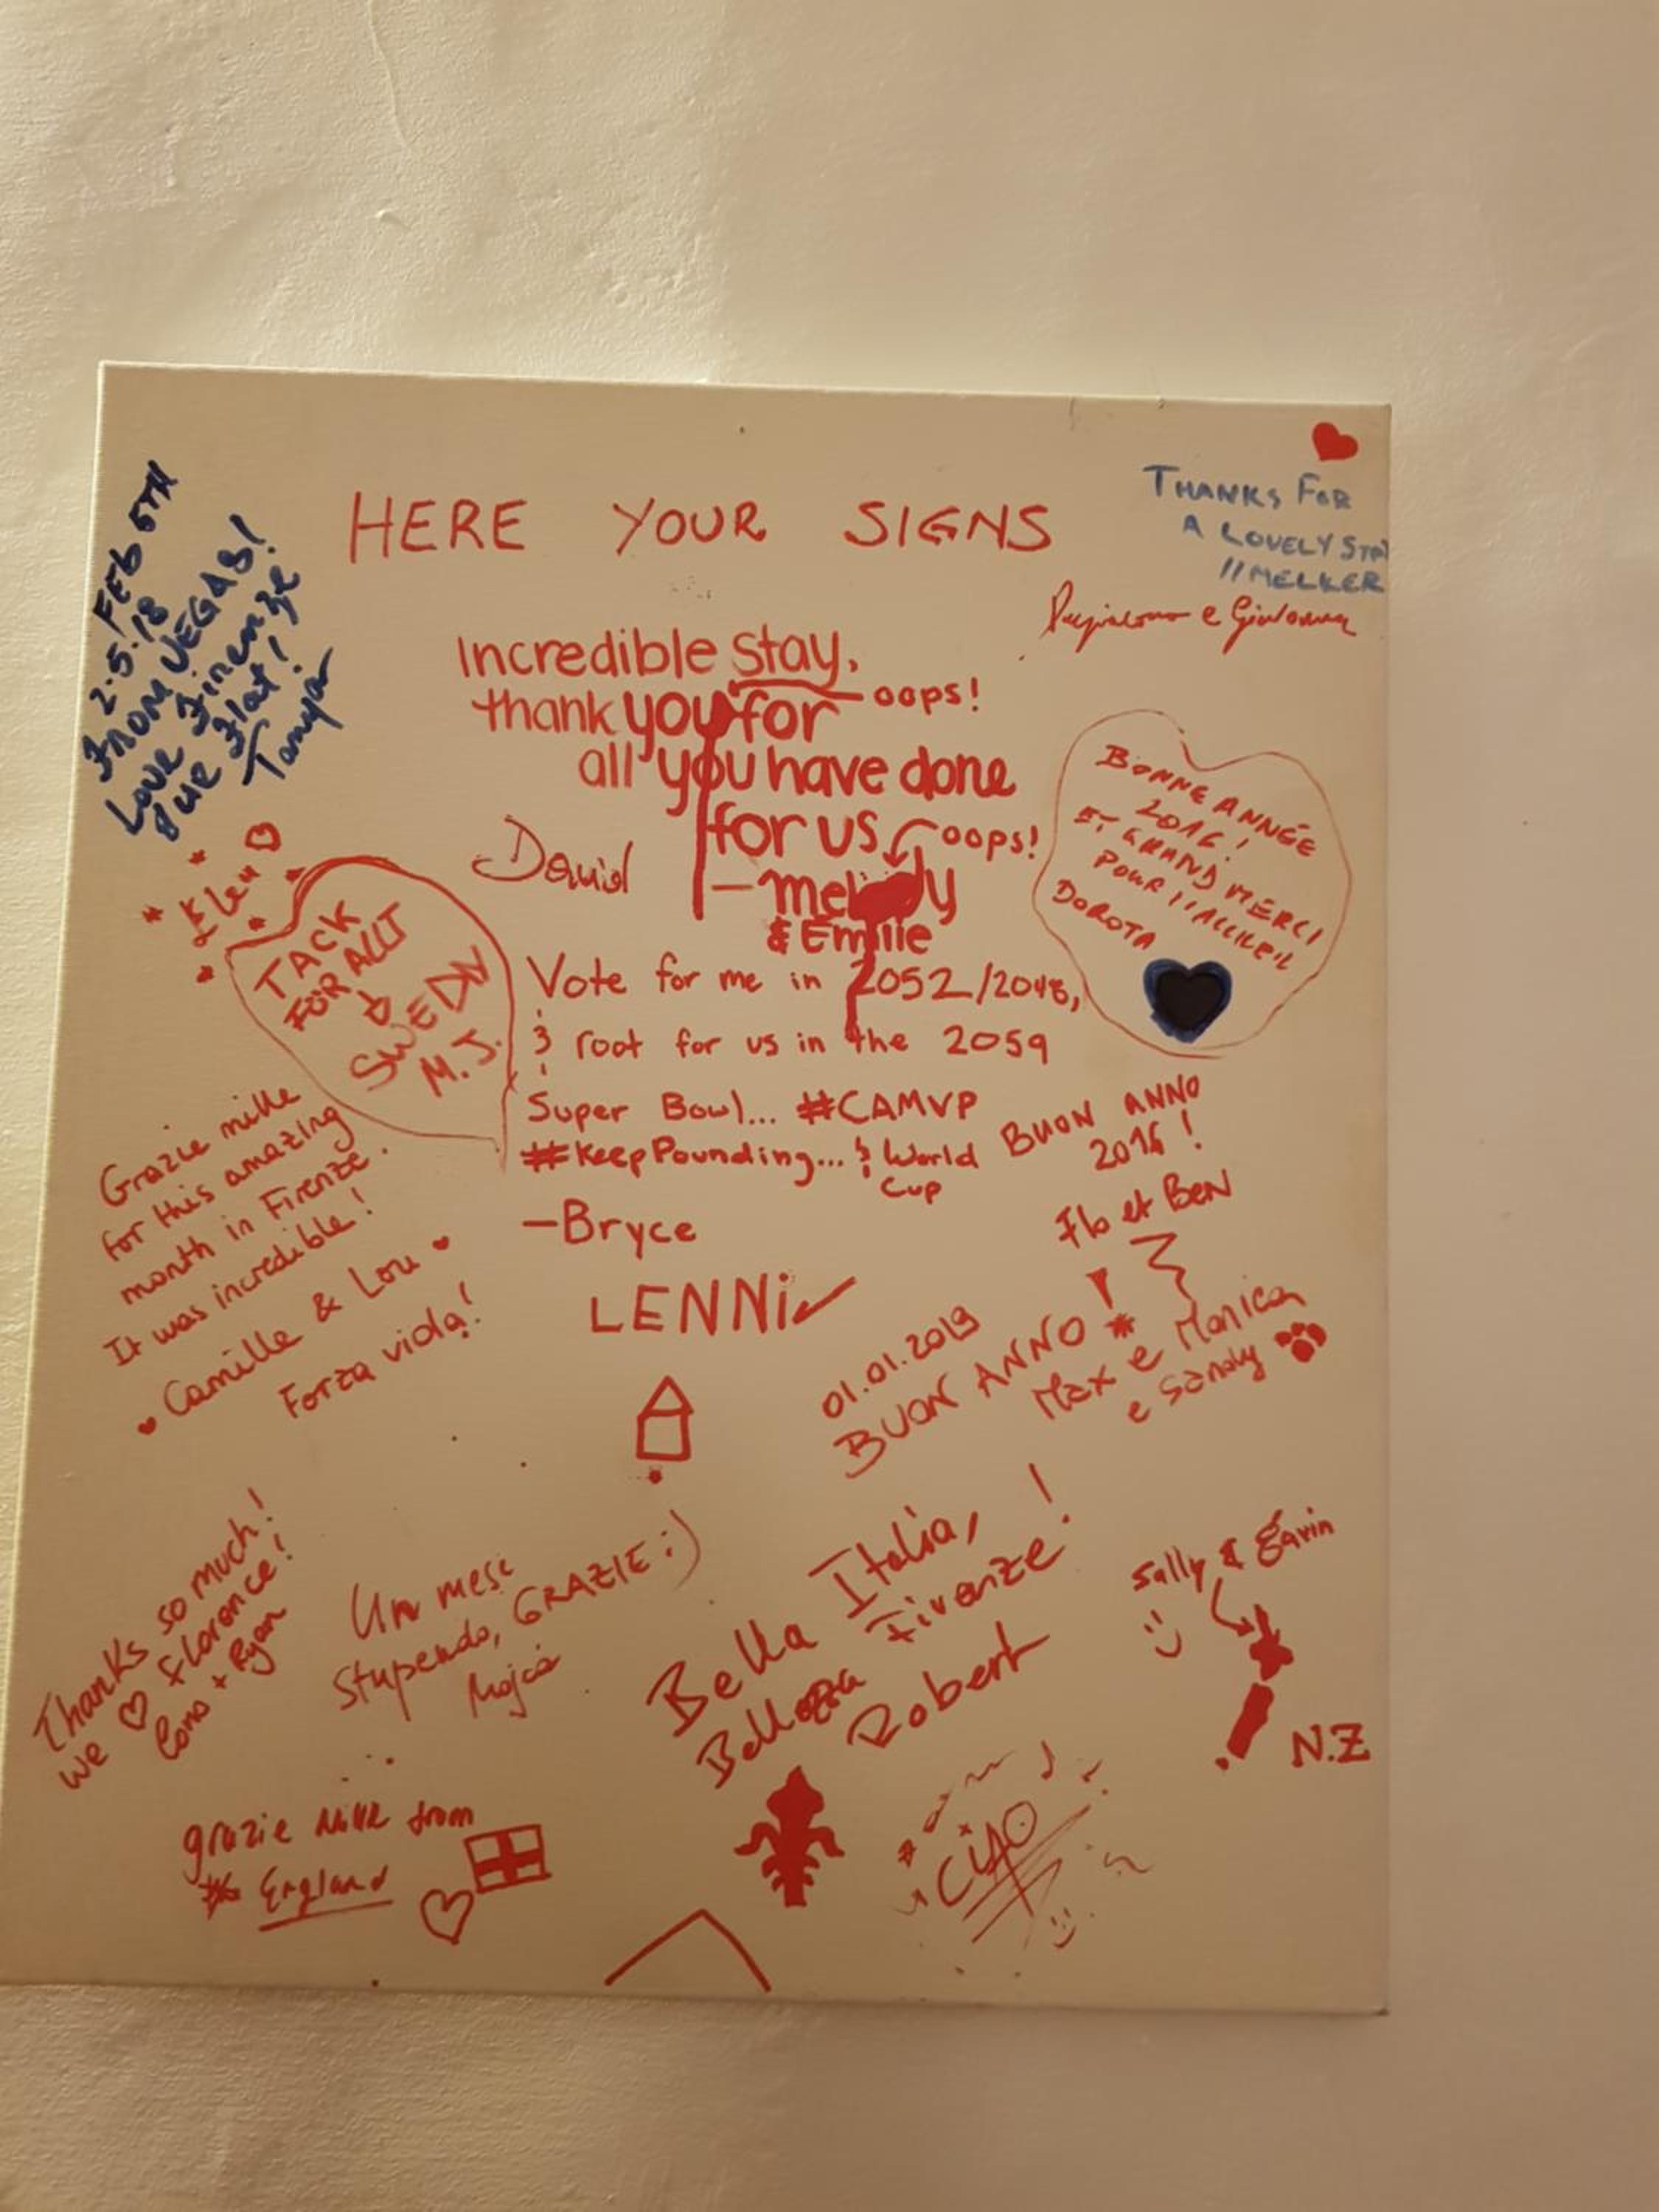 HERE YOUR SIGNS
FEb 5TH
2.5.18
FROM VEGAS!
Love Firenze
Flat!
Tanya
THANKS FOR
A LOVELY STAY
//MELKER
e Giovanna
Incredible stay,
thank you for
oops!
all you have done
for us
oops!
– melody
& Emilie
David
BONNE ANNÉE
2016!
ET GRAND MERCI
POUR l'ACCUEIL
DOROTA
Elen
TACK
FÖR ALLT
SWEDEN
M.J.
Vote for me in 2052/2048,
& root for us in the 2059
Super Bowl... #CAMVP
#KeepPounding... & World
Cup
–Bryce
BUON ANNO
2016!
Flo et BEN
Grazie mille
for this amazing
month in Firenze.
It was incredible!
Camille & Lou
Forza viola!
LENNi
01.01.2019
BUON ANNO!
Max e Monica
e Sandy
Thanks so much!
we ♡ florence!
+ Ryan
Un mese
stupendo, GRAZIE :)
Mojca
Bella Italia,
Bellezza Firenze!
Robert
Sally & Gavin
N.Z
grazie Mille from
England
CIAO